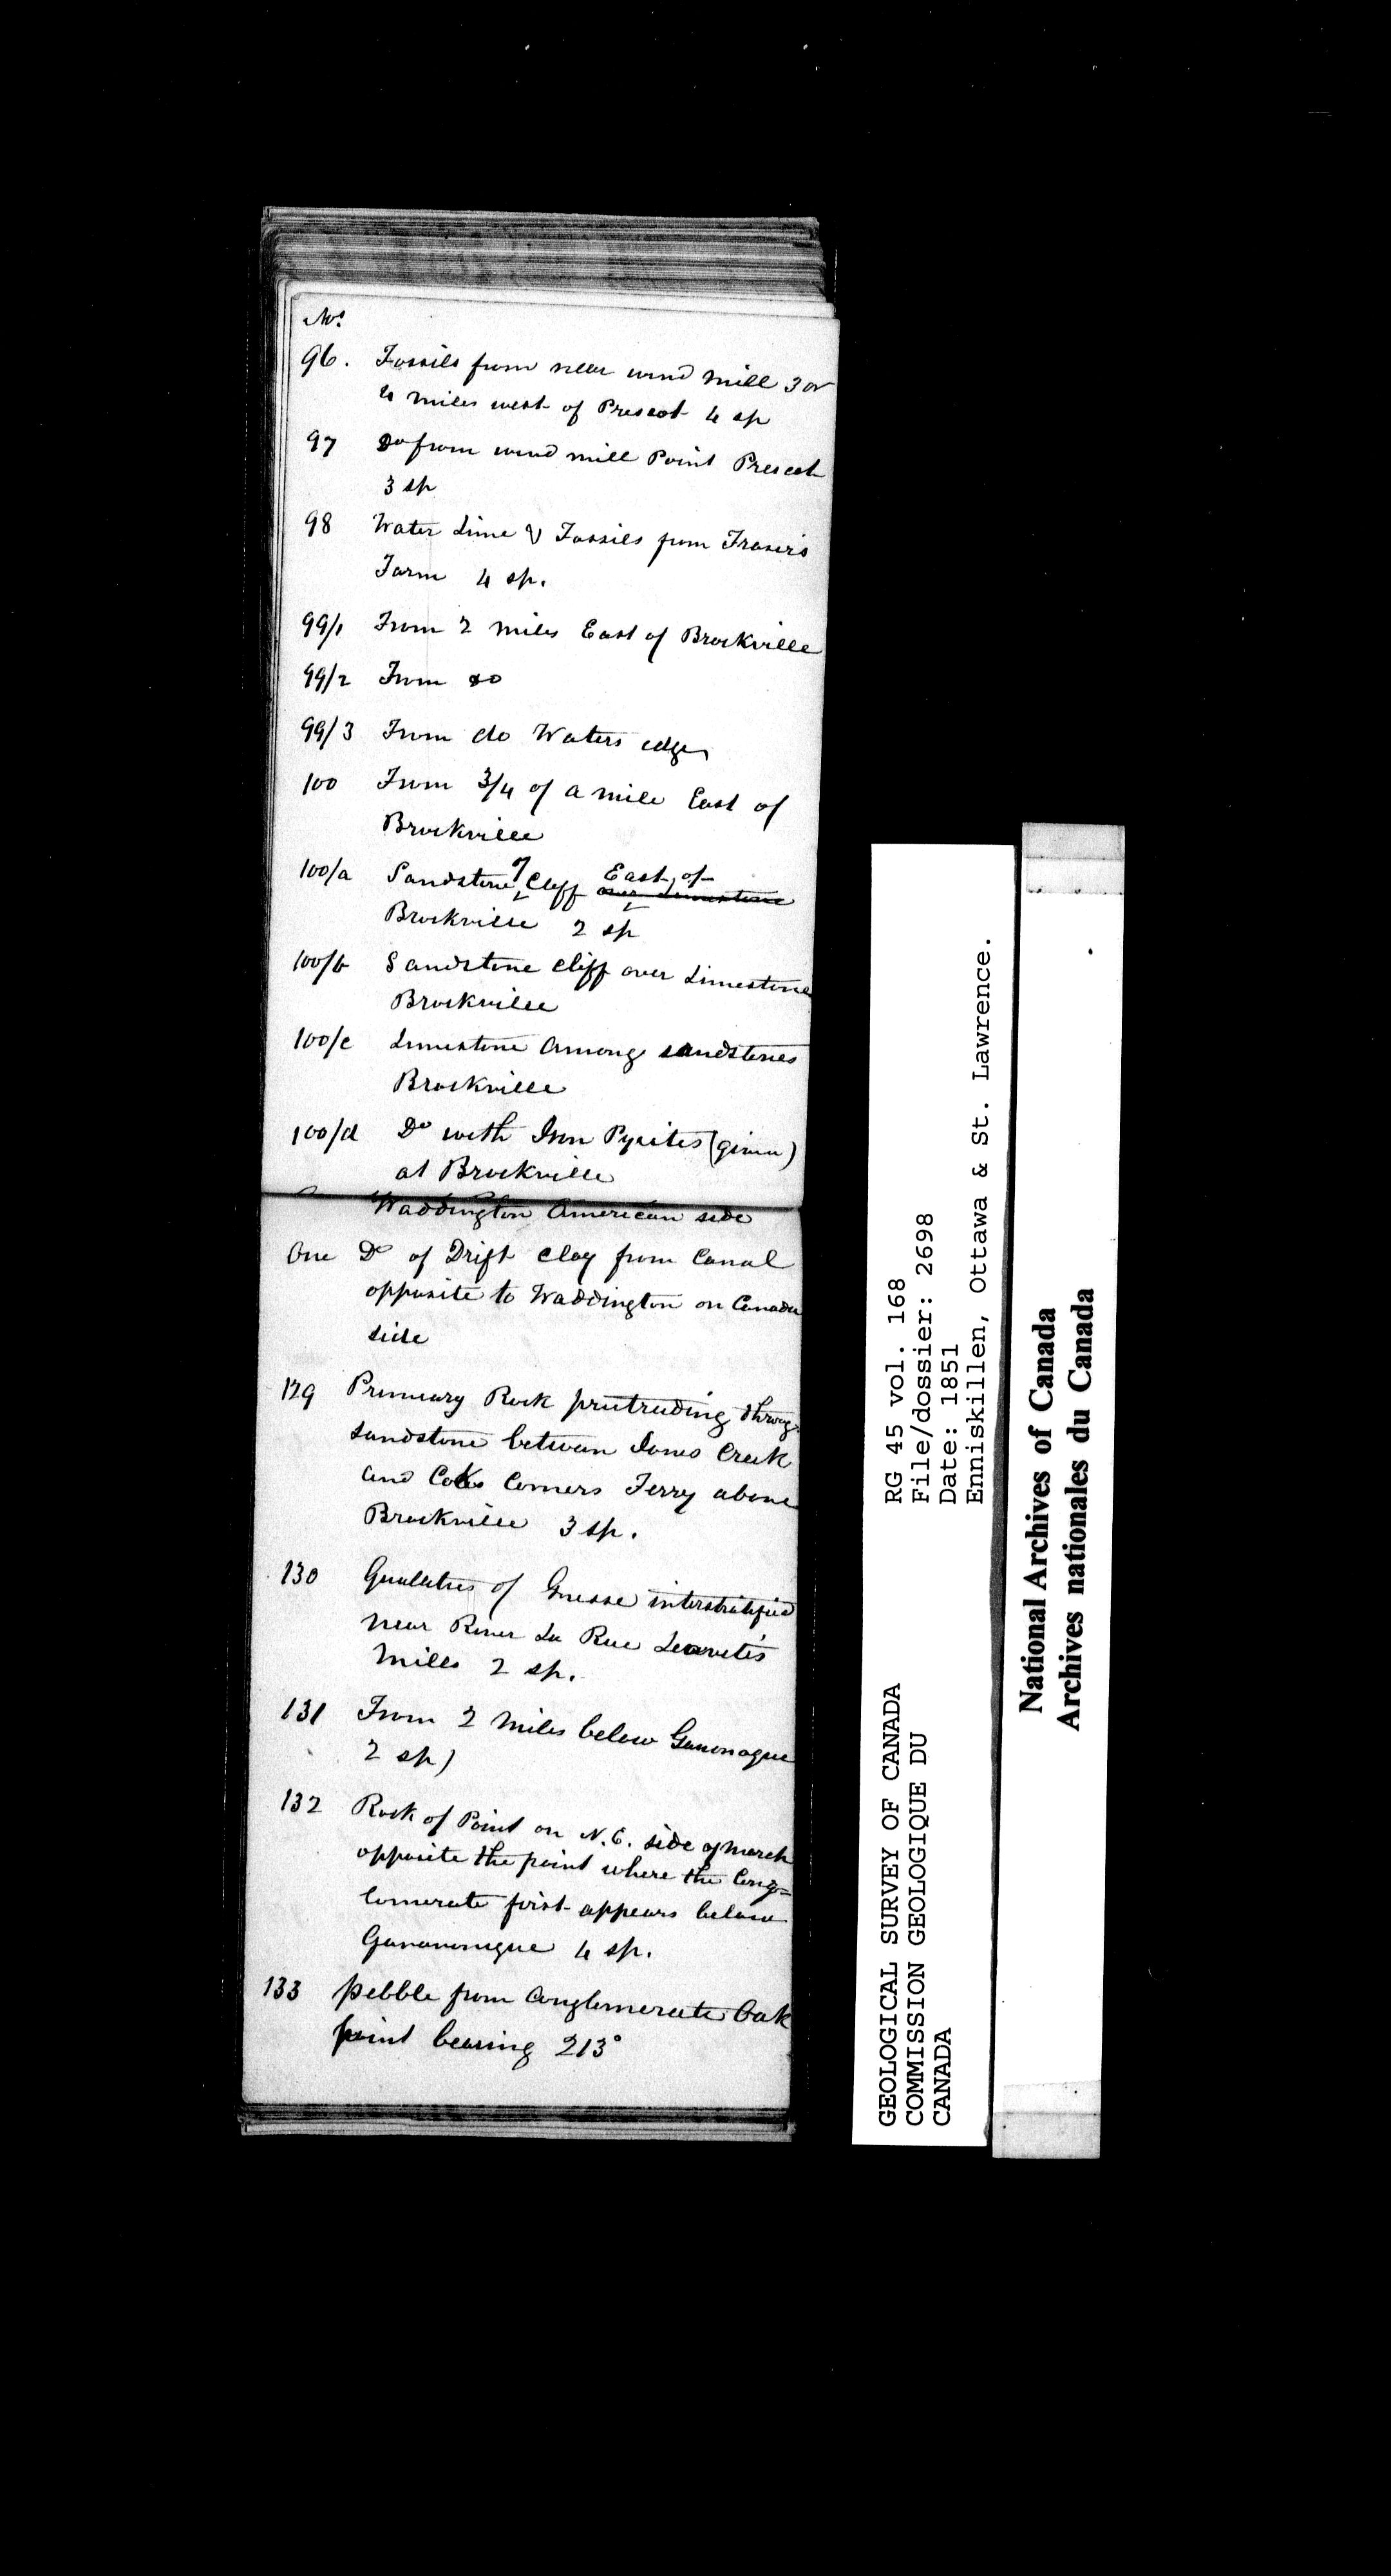 No.
96. Fossils from near wind mill 3 or
4 miles west of Prescot 4 sp
97 Do from wind mill Point Prescot
3 sp
98 Water Lime & Fossils from Fraser's
Farm 4 sp.
99/1 From 2 miles East of Brockville
99/2 From do
99/3 From do Waters edge
100 From 3/4 of a mile East of
Brockville
100/a Sandstone of Cliff over Limestone East of
Brockville 2 sp
100/b Sandstone Cliff over Limestone
Brockville
100/c Limestone Among sandstones
Brockville
100/d Do with Iron Pyrites (given)
at Brockville
Waddington American side
One Do of Drift Clay from Canal
opposite to Waddington on Canada
side
129 Primary Rock protruding throug
sandstone between Jones Creek
and Coles Corners Ferry above
Brockville 3 sp.
130 Qualities of Gneisse interstratified
near River La Rue
Mills 2 sp.
131 From 2 Miles below Gananoque
2 sp)
132 Rock of Point on N.E. side of march
opposite the point where the Cong=
lomerate first appears below
Gananonique 4 sp.
133 pebble from Conglomerate Oak
point bearing 213°
GEOLOGICAL SURVEY OF CANADA
COMMISSION GEOLOGIQUE DU
CANADA
RG 45 vol. 168
File/dossier: 2698
Date: 1851
Enniskillen, Ottawa & St. Lawrence.
National Archives of Canada
Archives nationales du Canada